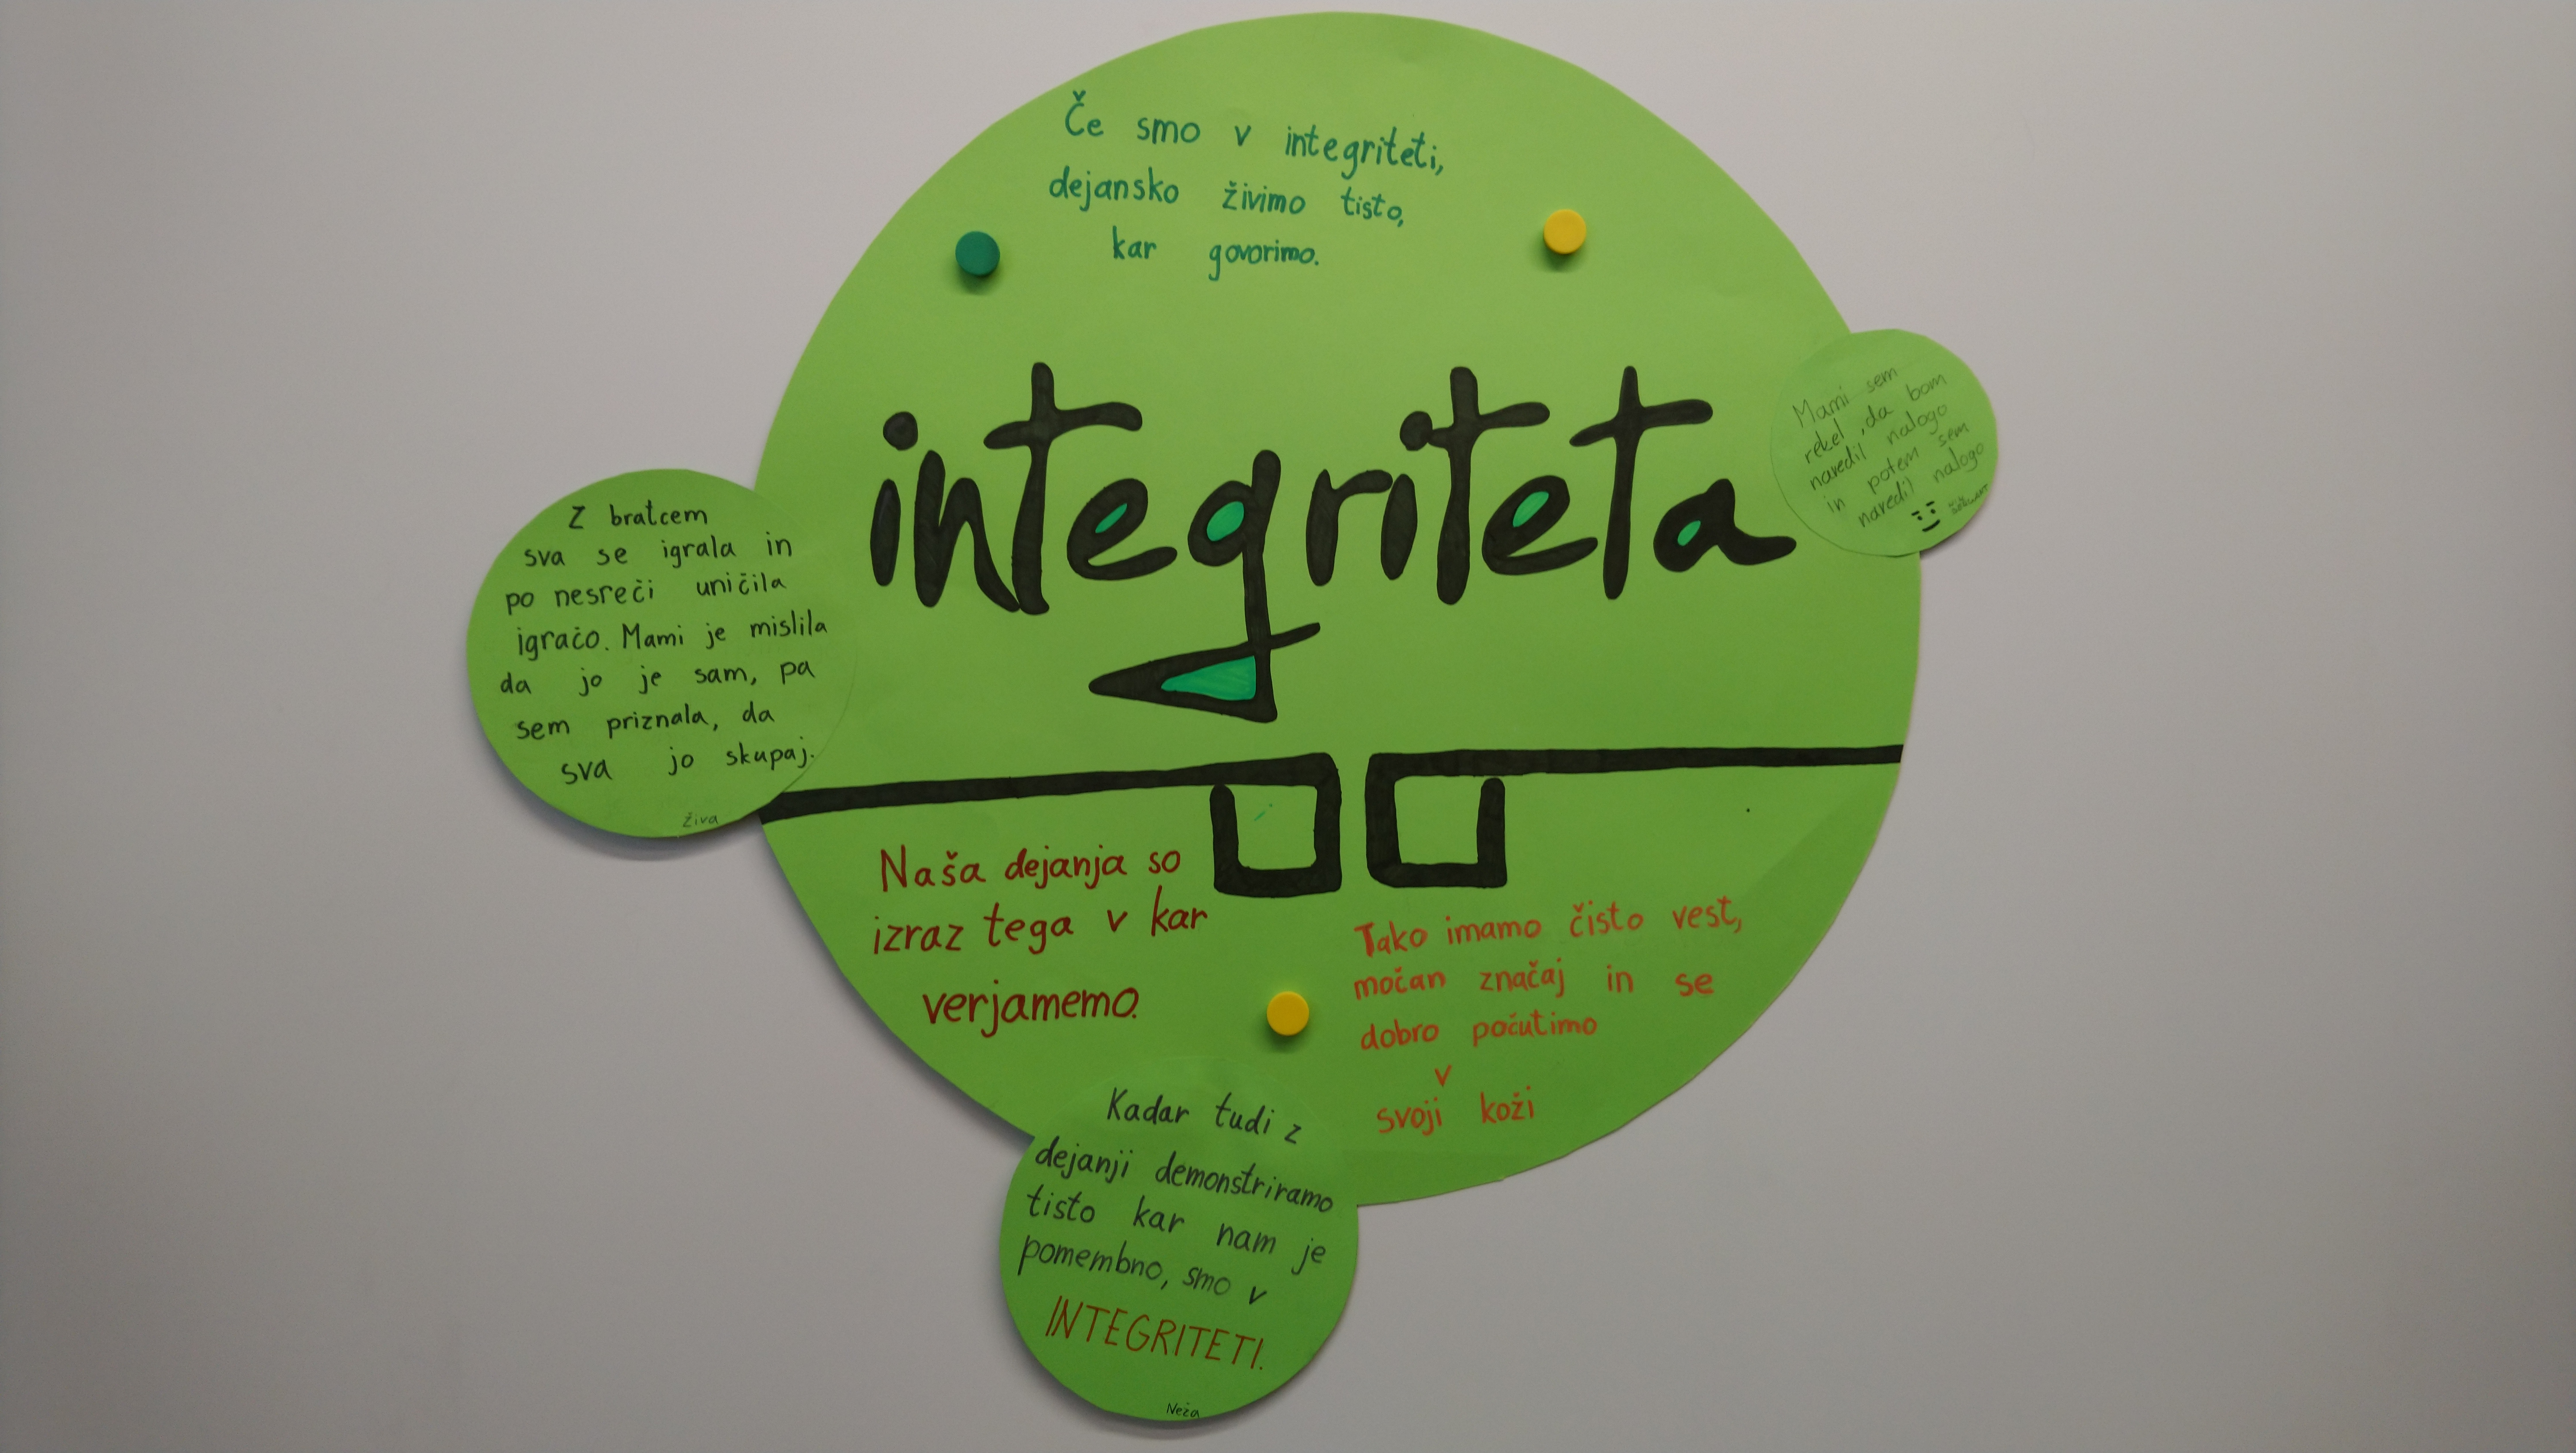 Če smo v integriteti,
dejansko živimo tisto,
kar govorimo.
integriteta
Mami sem
rekel, da bom
naredil nalogo
in potem sem
naredil nalogo
Z bratcem
sva se igrala in
po nesreči uničila
igračo. Mami je mislila
da jo je sam, pa
sem priznala, da
sva jo skupaj.
Živa
Naša dejanja so
izraz tega v kar
verjamemo.
Tako imamo čisto vest,
močan značaj in se
dobro počutimo
v
svoji koži
Kadar tudi z
dejanji demonstriramo
tisto kar nam je
pomembno, smo v
INTEGRITETI.
Neža